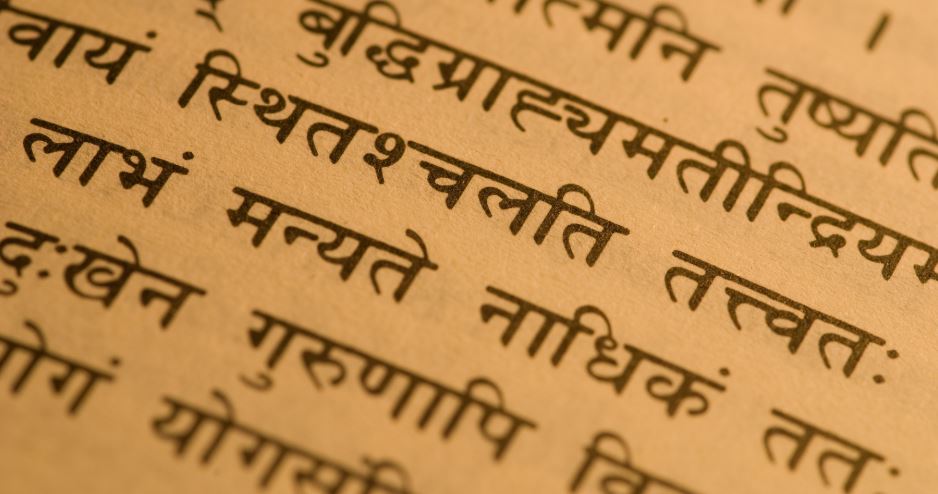 त्मनि तुष्यति ।
बुद्धिग्राह्यमतीन्द्रियम
वायं स्थितश्चलति तत्त्वतः
लाभं मन्यते नाधिकं ततः
दुःखेन गुरुणापि वि
योगं योगसंज्ञि